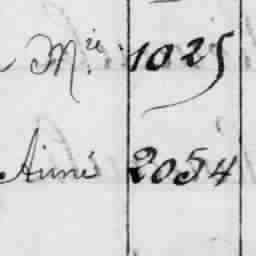 Mie 1025
Aimé 2054